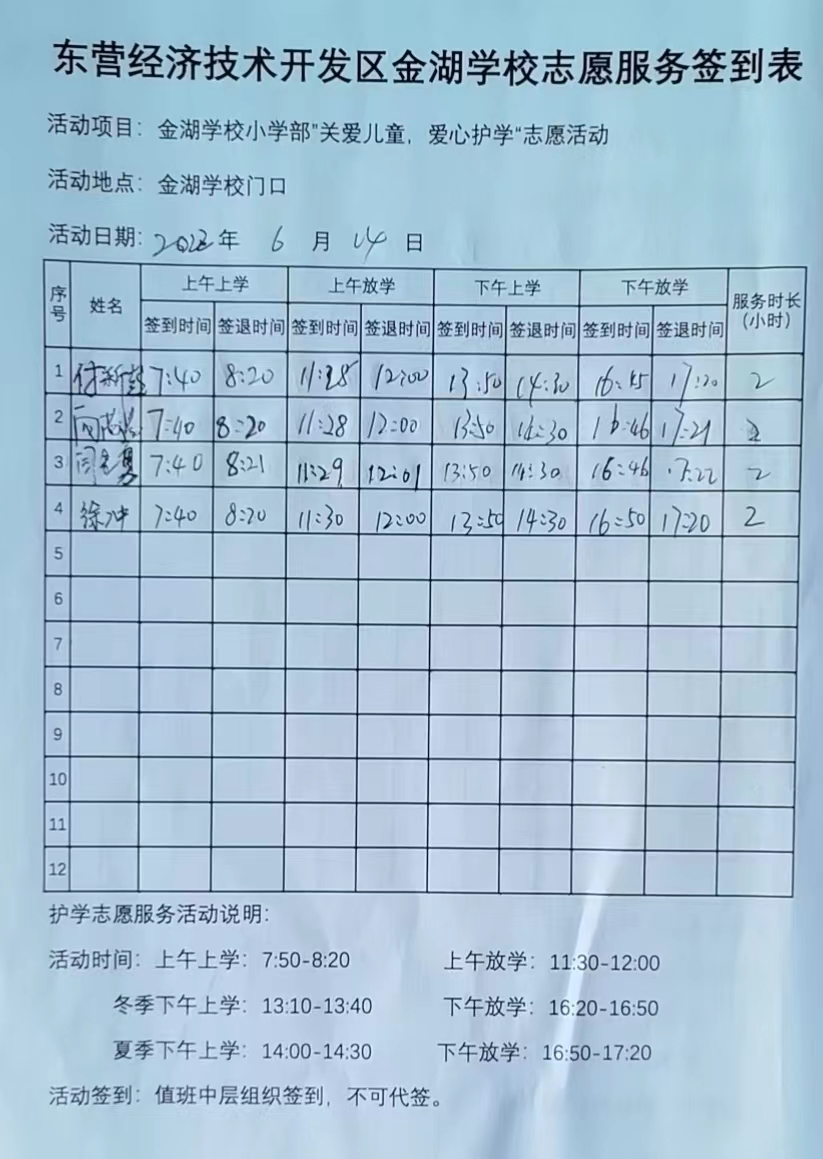 东营经济技术开发区金湖学校志愿服务签到表
活动项目：金湖学校小学部"关爱儿童，爱心护学"志愿活动
活动地点：金湖学校门口
活动日期：2023年 6 月 14 日
序号 姓名 上午上学 上午放学 下午上学 下午放学 服务时长（小时）
签到时间 签退时间 签到时间 签退时间 签到时间 签退时间 签到时间 签退时间
1 7:40 8:20 11:28 12:00 13:50 14:30 17:20 2
2 7:40 8:20 11:28 12:00 13:50 14:30 16:46 17:21 2
3 7:40 8:21 11:29 12:01 13:50 14:30 16:46 17:22 2
4 徐冲 7:40 8:20 11:30 12:00 13:50 14:30 16:50 17:20 2
5
6
7
8
9
10
11
12
护学志愿服务活动说明：
活动时间：上午上学：7:50-8:20 上午放学：11:30-12:00
冬季下午上学：13:10-13:40 下午放学：16:20-16:50
夏季下午上学：14:00-14:30 下午放学：16:50-17:20
活动签到：值班中层组织签到，不可代签。